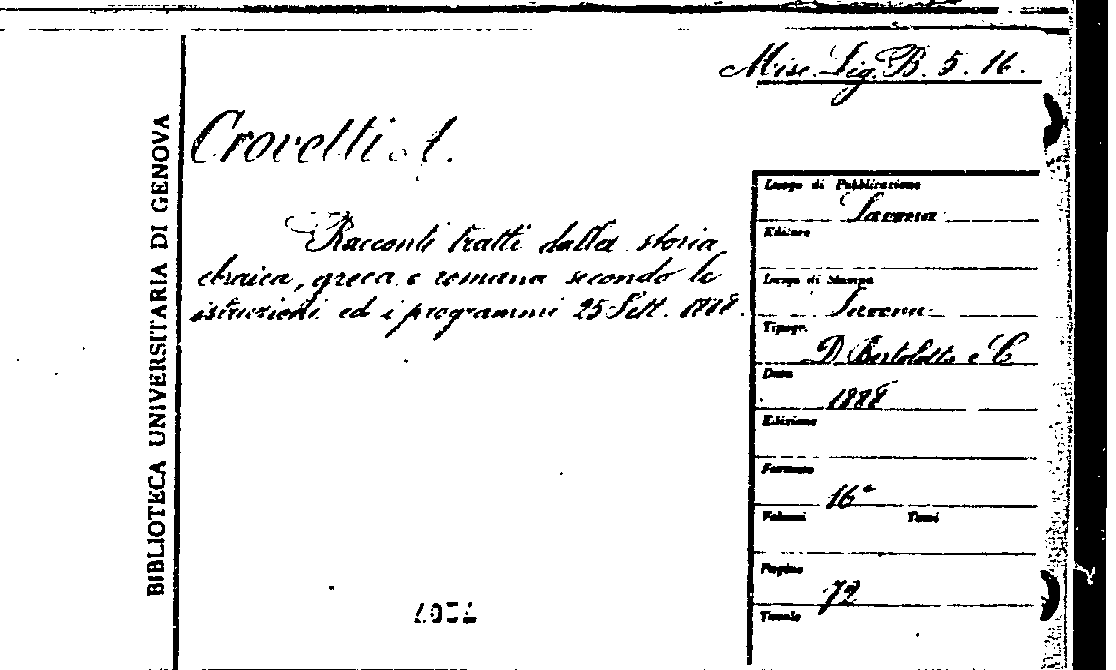 Misc. Lig. B. 5. 16.
BIBLIOTECA UNIVERSITARIA DI GENOVA
Crovetti A.
Racconti tratti dalla storia
ebraica, greca e romana secondo le
istruzioni ed i programmi 25 Sett. 1888.
Luogo di Pubblicazione
Savona
Editore
Luogo di Stampa
Savona
Tipogr.
D. Bertolotto e C
Data
1888
Edizione
Formato
16°
Volumi Tomi
Pagine
72
Tavole